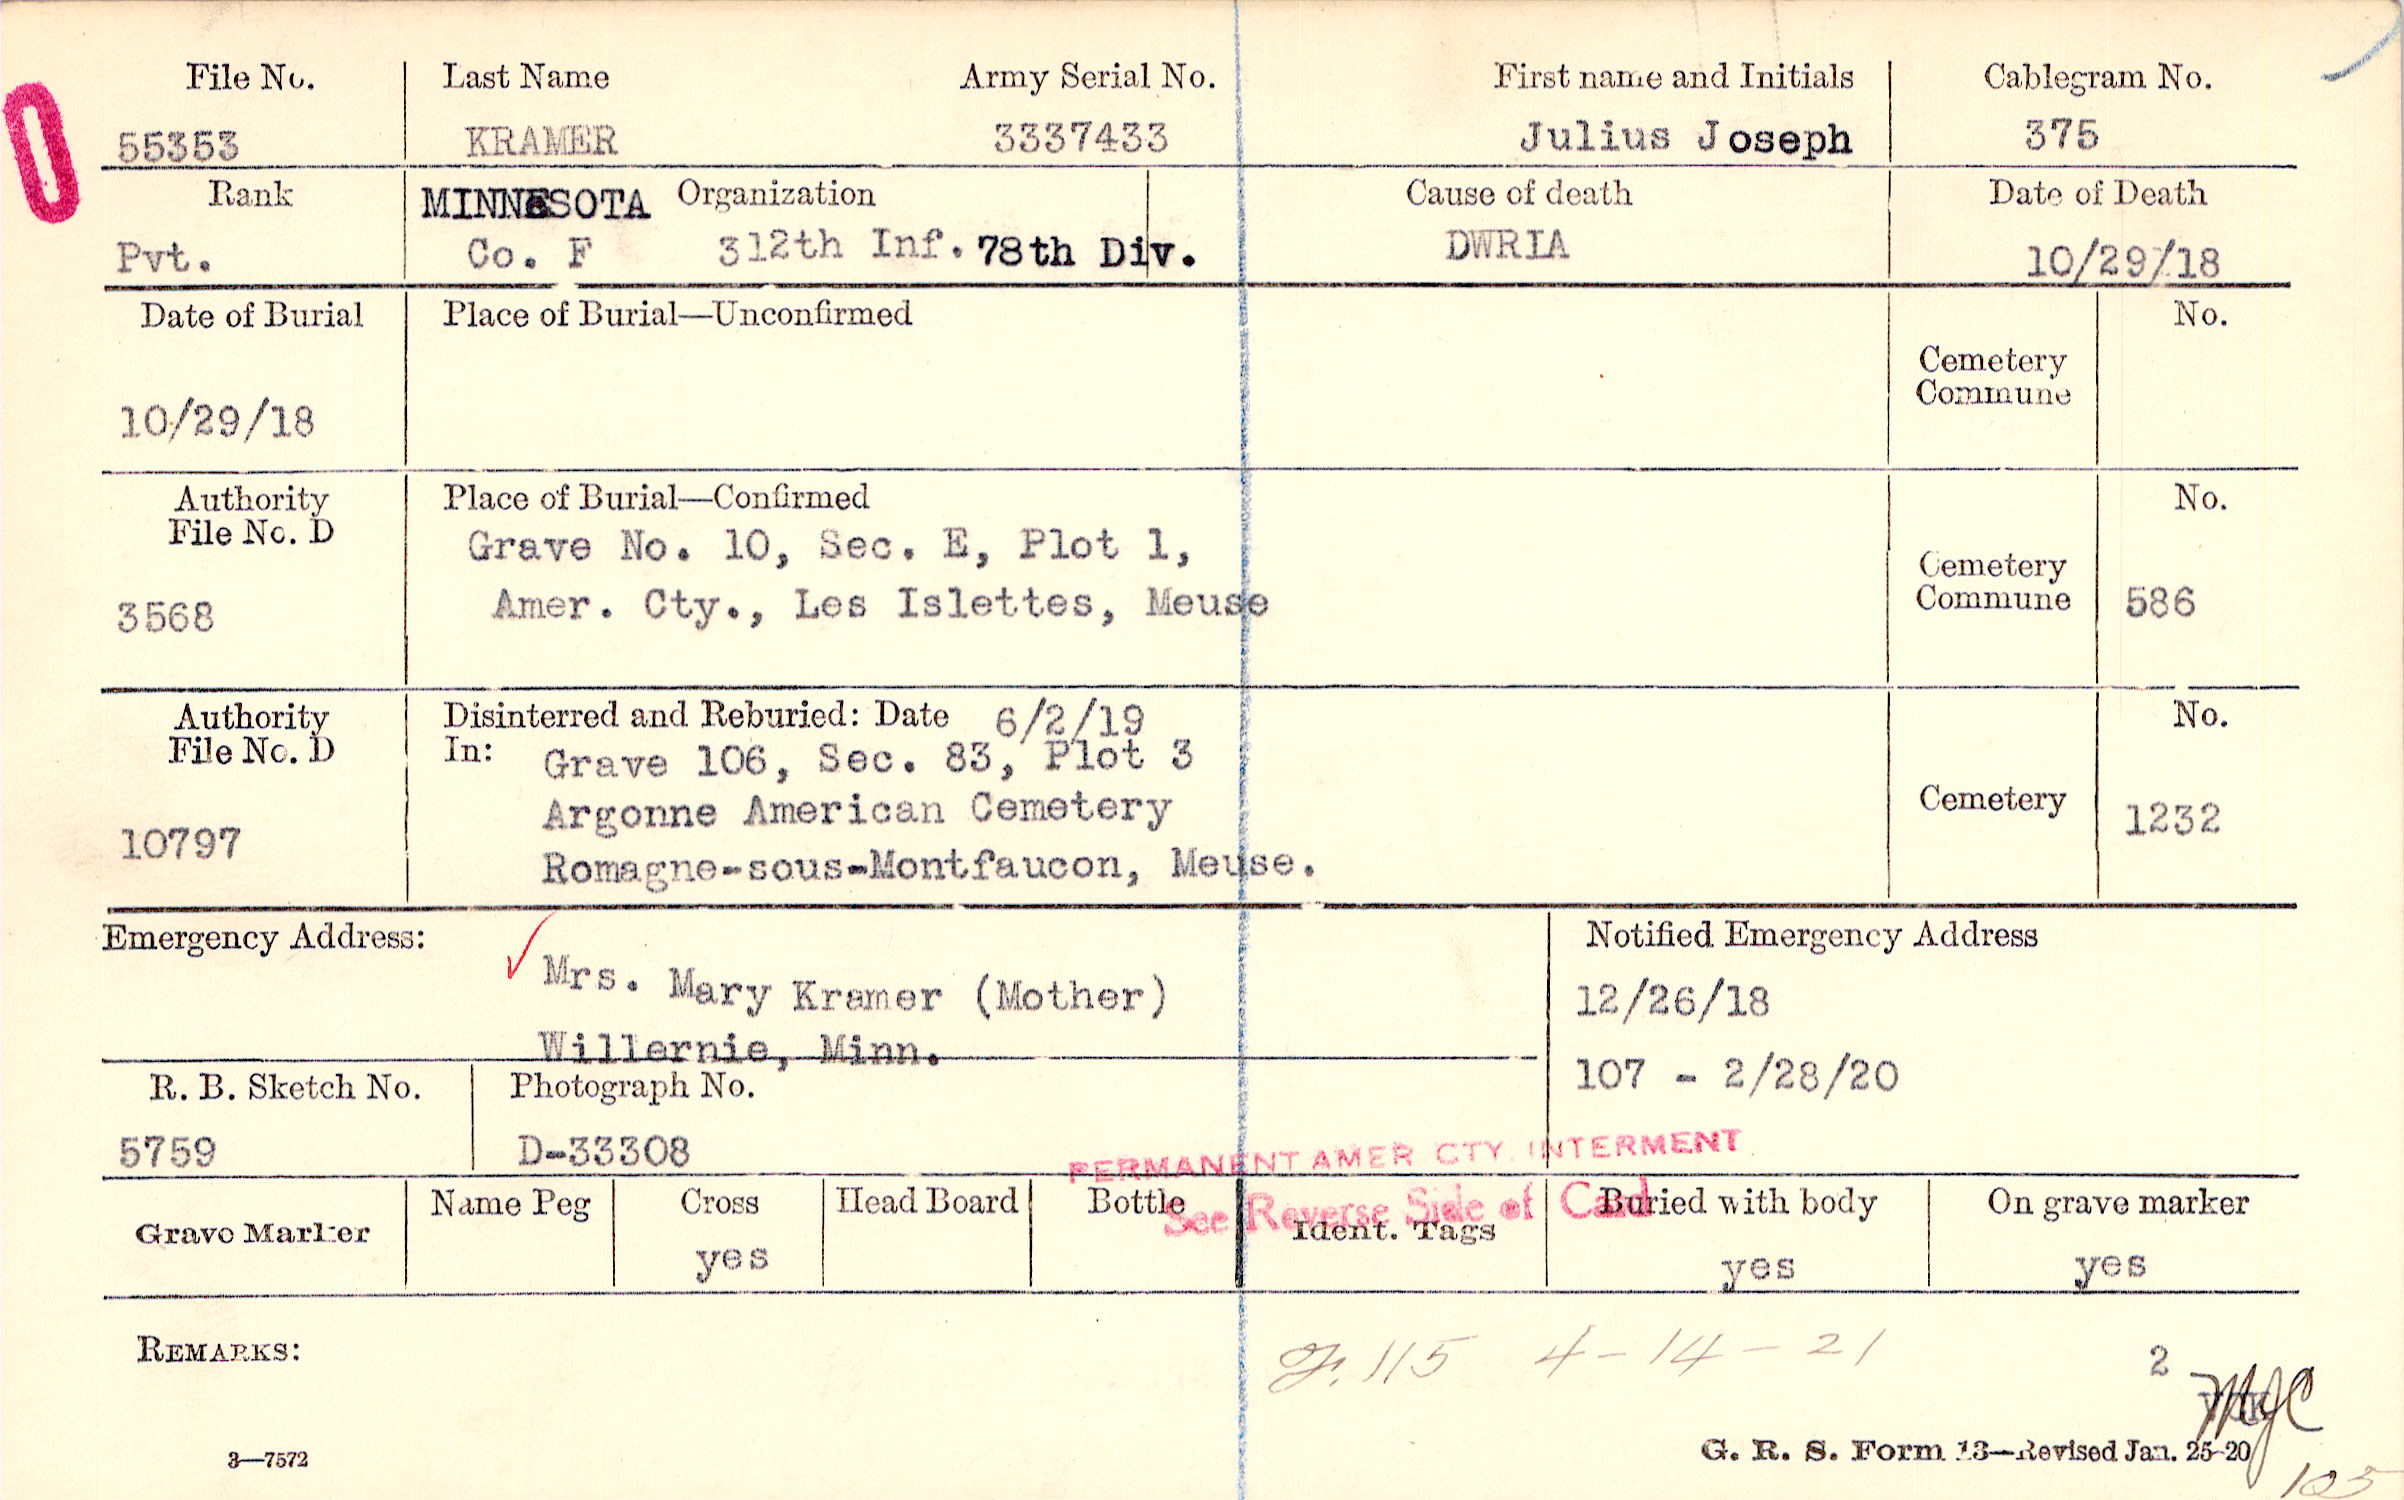 File No. Last Name Army Serial No. First name and Initials Cablegram No.
55353 KRAMER 3337433 Julius Joseph 375
Rank MINNESOTA Organization Cause of death Date of Death
Pvt. Co. F 312th Inf. 78th Div. DWRIA 10/29/18
Date of Burial Place of Burial—Unconfirmed No.
Cemetery
Commune
10/29/18
Authority Place of Burial—Confirmed No.
File No. D
Grave No. 10, Sec. E, Plot 1,
Cemetery
3568 Amer. Cty., Les Islettes, Meuse Commune 586
Authority Disinterred and Reburied: Date 6/2/19 No.
File No. D In: Grave 106, Sec. 83, Plot 3
Argonne American Cemetery Cemetery 1232
10797
Romagne-sous-Montfaucon, Meuse.
Emergency Address: Notified Emergency Address
Mrs. Mary Kramer (Mother) 12/26/18
Willernie, Minn.
107 - 2/28/20
R. B. Sketch No. Photograph No.
5759 D-33308
PERMANENT AMER CTY. INTERMENT
Grave Marker Name Peg Cross Head Board Bottle Ident. Tags Buried with body On grave marker
See Reverse Side of Card
yes yes yes
REMARKS: 115 4-14-21 2
MJC
3—7572 G. R. S. Form 13—Revised Jan. 25-20
105